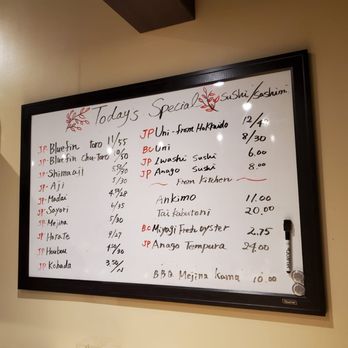 Todays Special
Sushi/Sashimi
JP Bluefin Toro 11/55
JP Bluefin Chu-Toro 10/50
JP Shimaaji
JP Aji 5/30
JP Madai
JP Sayori
JP Mejina 5/30
JP Hatate
JP Houbou
JP Kohada
JP Uni - from Hokkaido
BC Uni 8/30
JP Iwashi Sushi 6.00
JP Anago Sushi 8.00
From Kitchen
Ankimo 11.00
Tai kabutoni 20.00
BC Miyagi Fresh oyster 2.75
JP Anago Tempura 24.00
B.B.Q. Mejina Kama 10.00